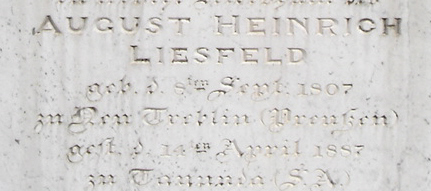 AUGUST HEINRICH
LIESFELD
geb. d. 8ten Sept. 1807
zu Neu Trebbin (Preußen)
gest. d. 14ten April 1887
zu Tanunda (S.A.)